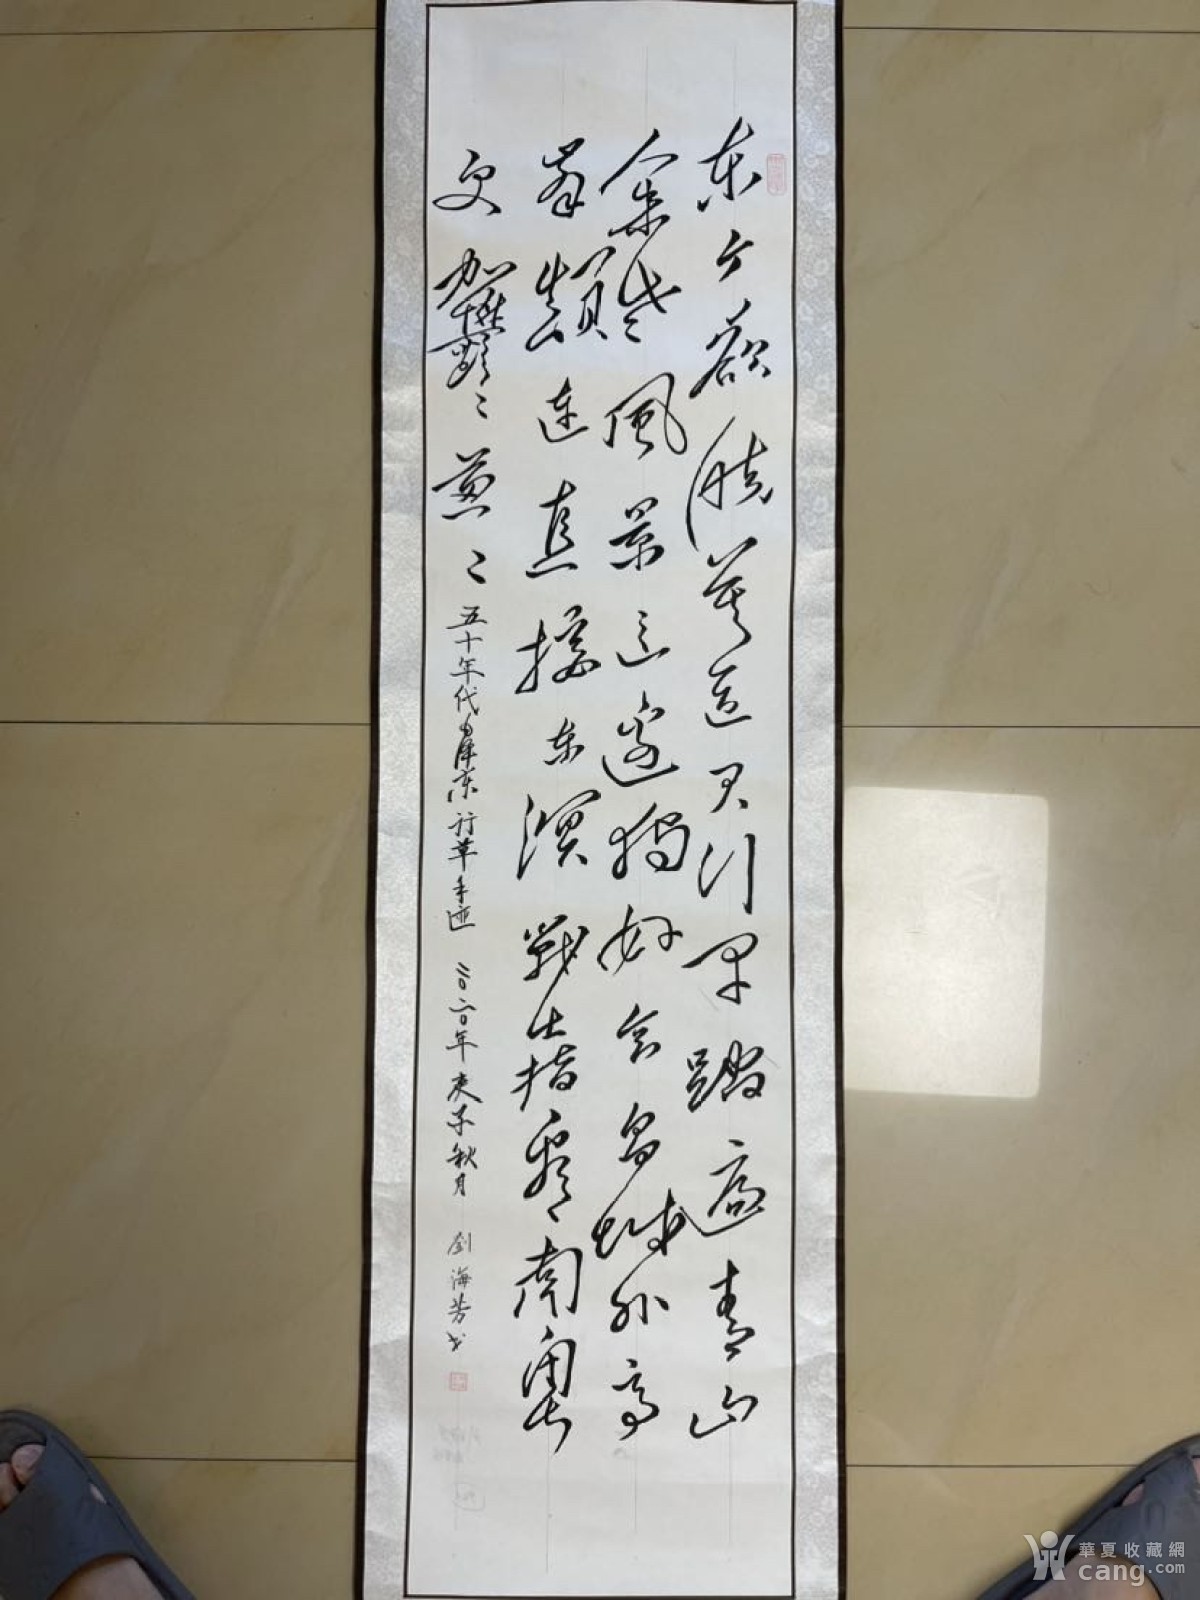 东方欲晓莫道君行早踏遍青山
人未老風景这边獨好会昌城外高
峯顛連直接东溟戰士指看南粤
更加欝〻葱〻
五十年代毛泽东行草手迹 二〇二〇年庚子秋月 劉海芳书
華夏收藏網
cang.com